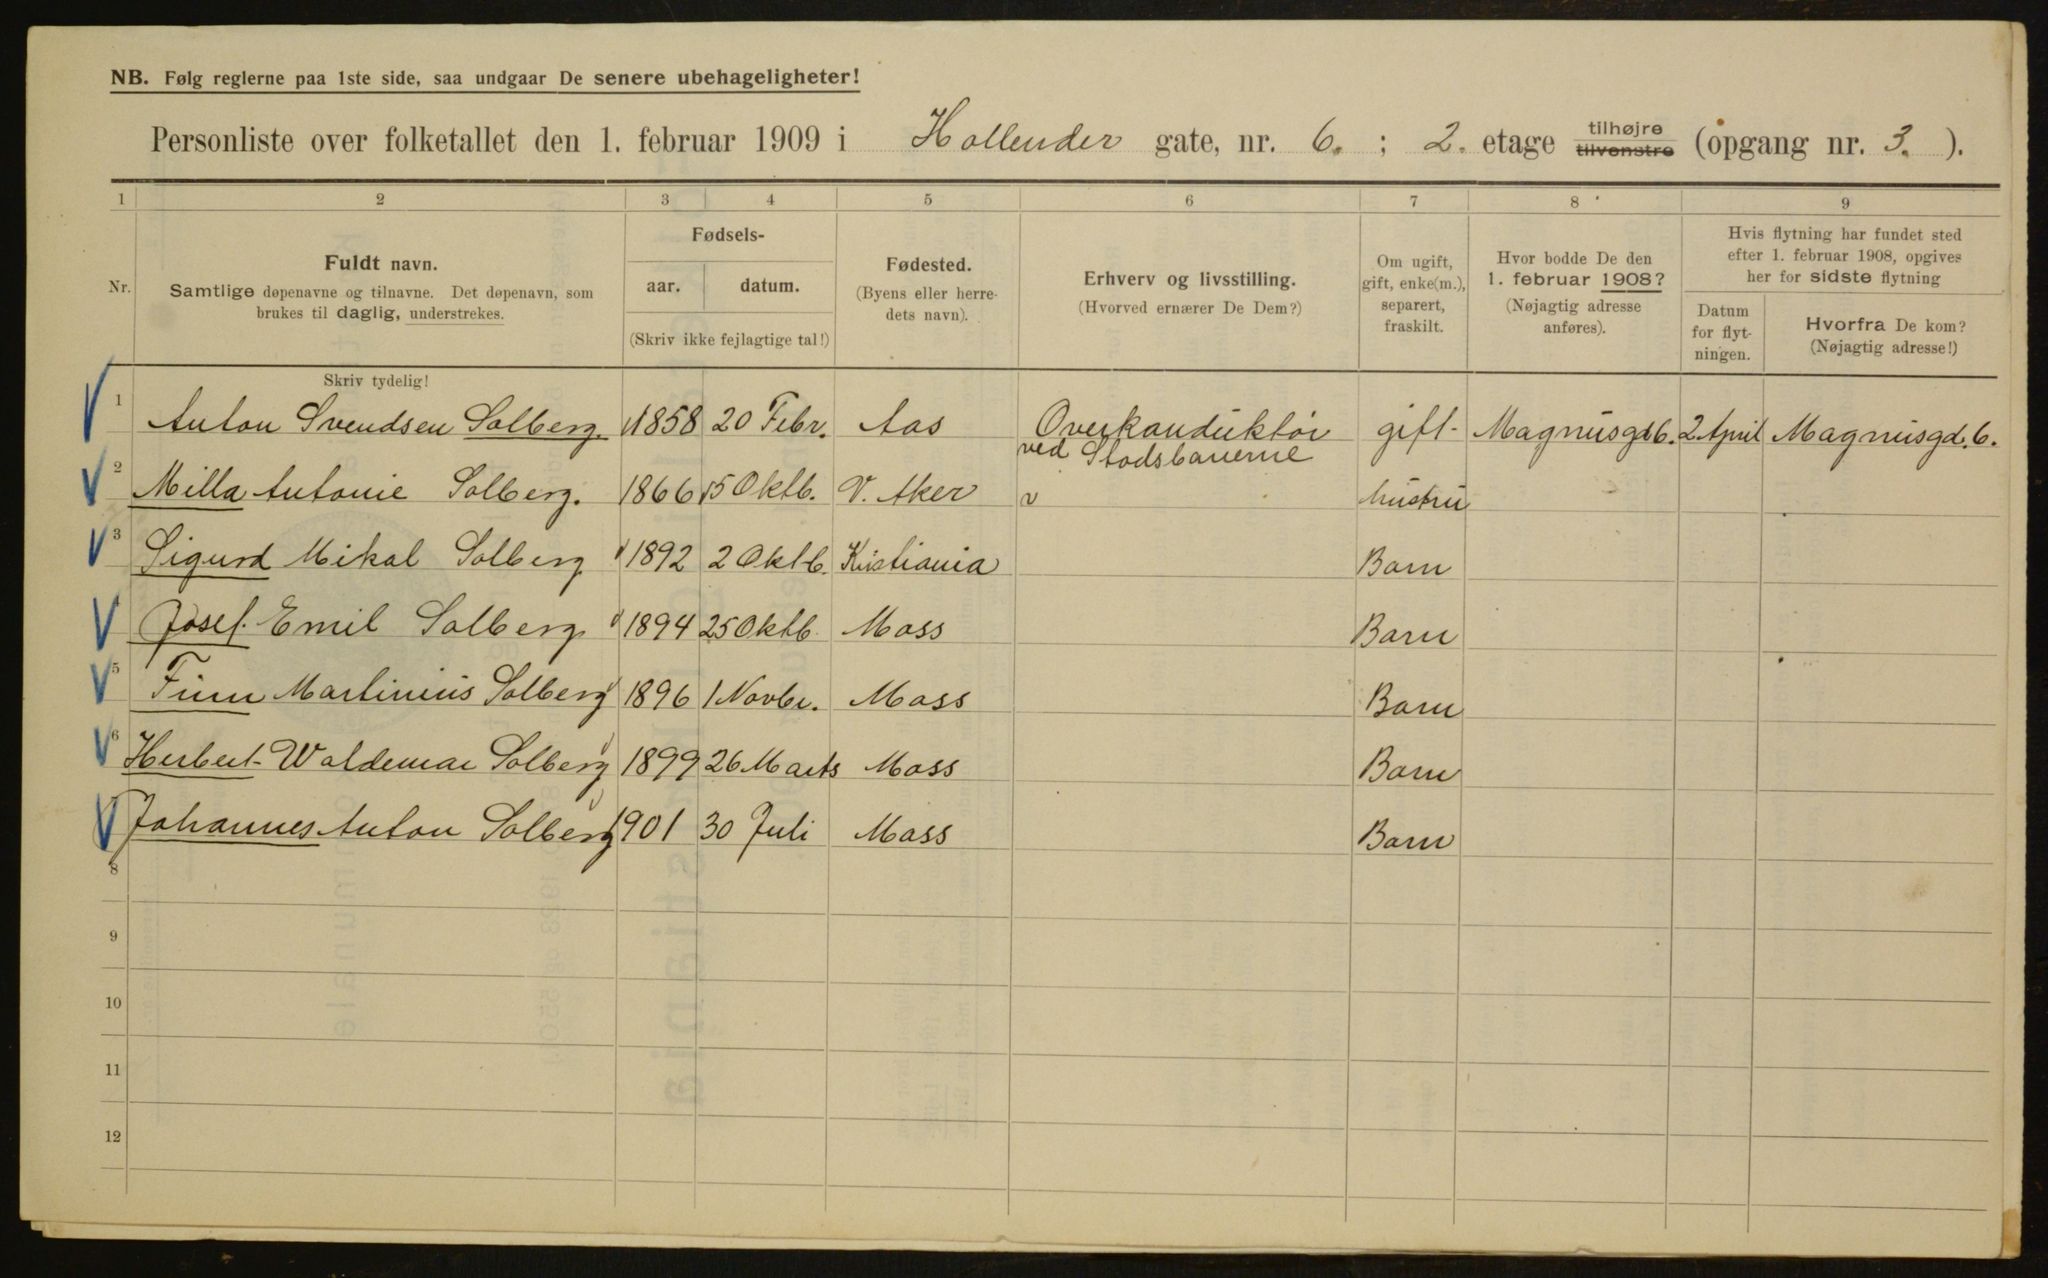 NB. Følg reglerne paa 1ste side, saa undgaar De senere ubehageligheter!
Personliste over folketallet den 1. februar 1909 i Hollender gate, nr. 6. ; 2. etage tilhøjre tilvenstre (opgang nr. 3. ).
1 2 3 4 5 6 7 8 9
Nr.
Fuldt navn.
Samtlige døpenavne og tilnavne. Det døpenavn, som
brukes til daglig, understrekes.
Fødsels-
aar. datum.
(Skriv ikke fejlagtige tal!)
Fødested.
(Byens eller herre-
dets navn).
Erhverv og livsstilling.
(Hvorved ernærer De Dem?)
Om ugift,
gift, enke(m.),
separert,
fraskilt.
Hvor bodde De den
1. februar 1908?
(Nøjagtig adresse
anføres).
Hvis flytning har fundet sted
efter 1. februar 1908, opgives
her for sidste flytning
Datum
for flyt-
ningen.
Hvorfra De kom?
(Nøjagtig adresse!)
Skriv tydelig!
1 Anton Svendsen Solberg. 1858 20 Febr. Aas Overkonduktør gift Magnusgd 6. 2 April Magnusgd. 6.
ved Stadsbanerne
2 Milla Antonie Solberg. 1866 15 Oktb. V. Aker hustru
3 Sigurd Mikal Solberg 1892 2 Oktb. Kristiania Barn
Josef Emil Solberg 1894 25 Oktb. Moss Barn
5 Finn Martinius Solberg 1896 1 Novbr. Moss Barn
6 Herbert Waldemar Solberg 1899 26 Marts Moss Barn
Johannes Anton Solberg 1901 30 Juli Moss Barn
8
9
10
11
12